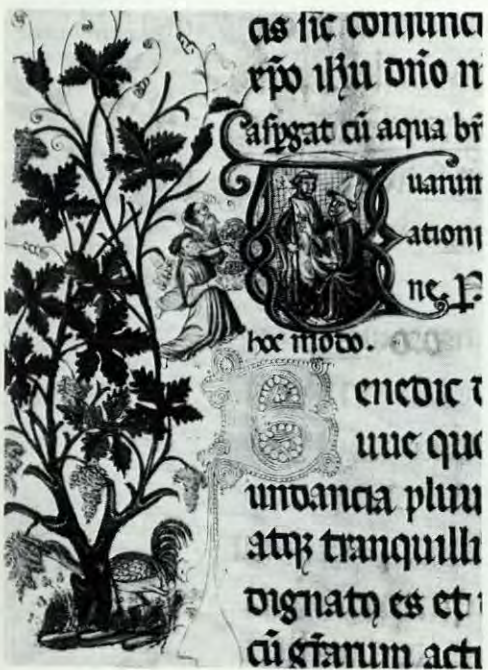 cis sic coniunct
xp̄o ih̄u dn̄o n
Aspgat cū aqua bn̄
Uuarum
ationi
ne. P.
hoc modo.
Benedic
uue quo
undancia pluu
atqꝫ tranquilli
dignatꝯ es et
cū gr̄arum acti